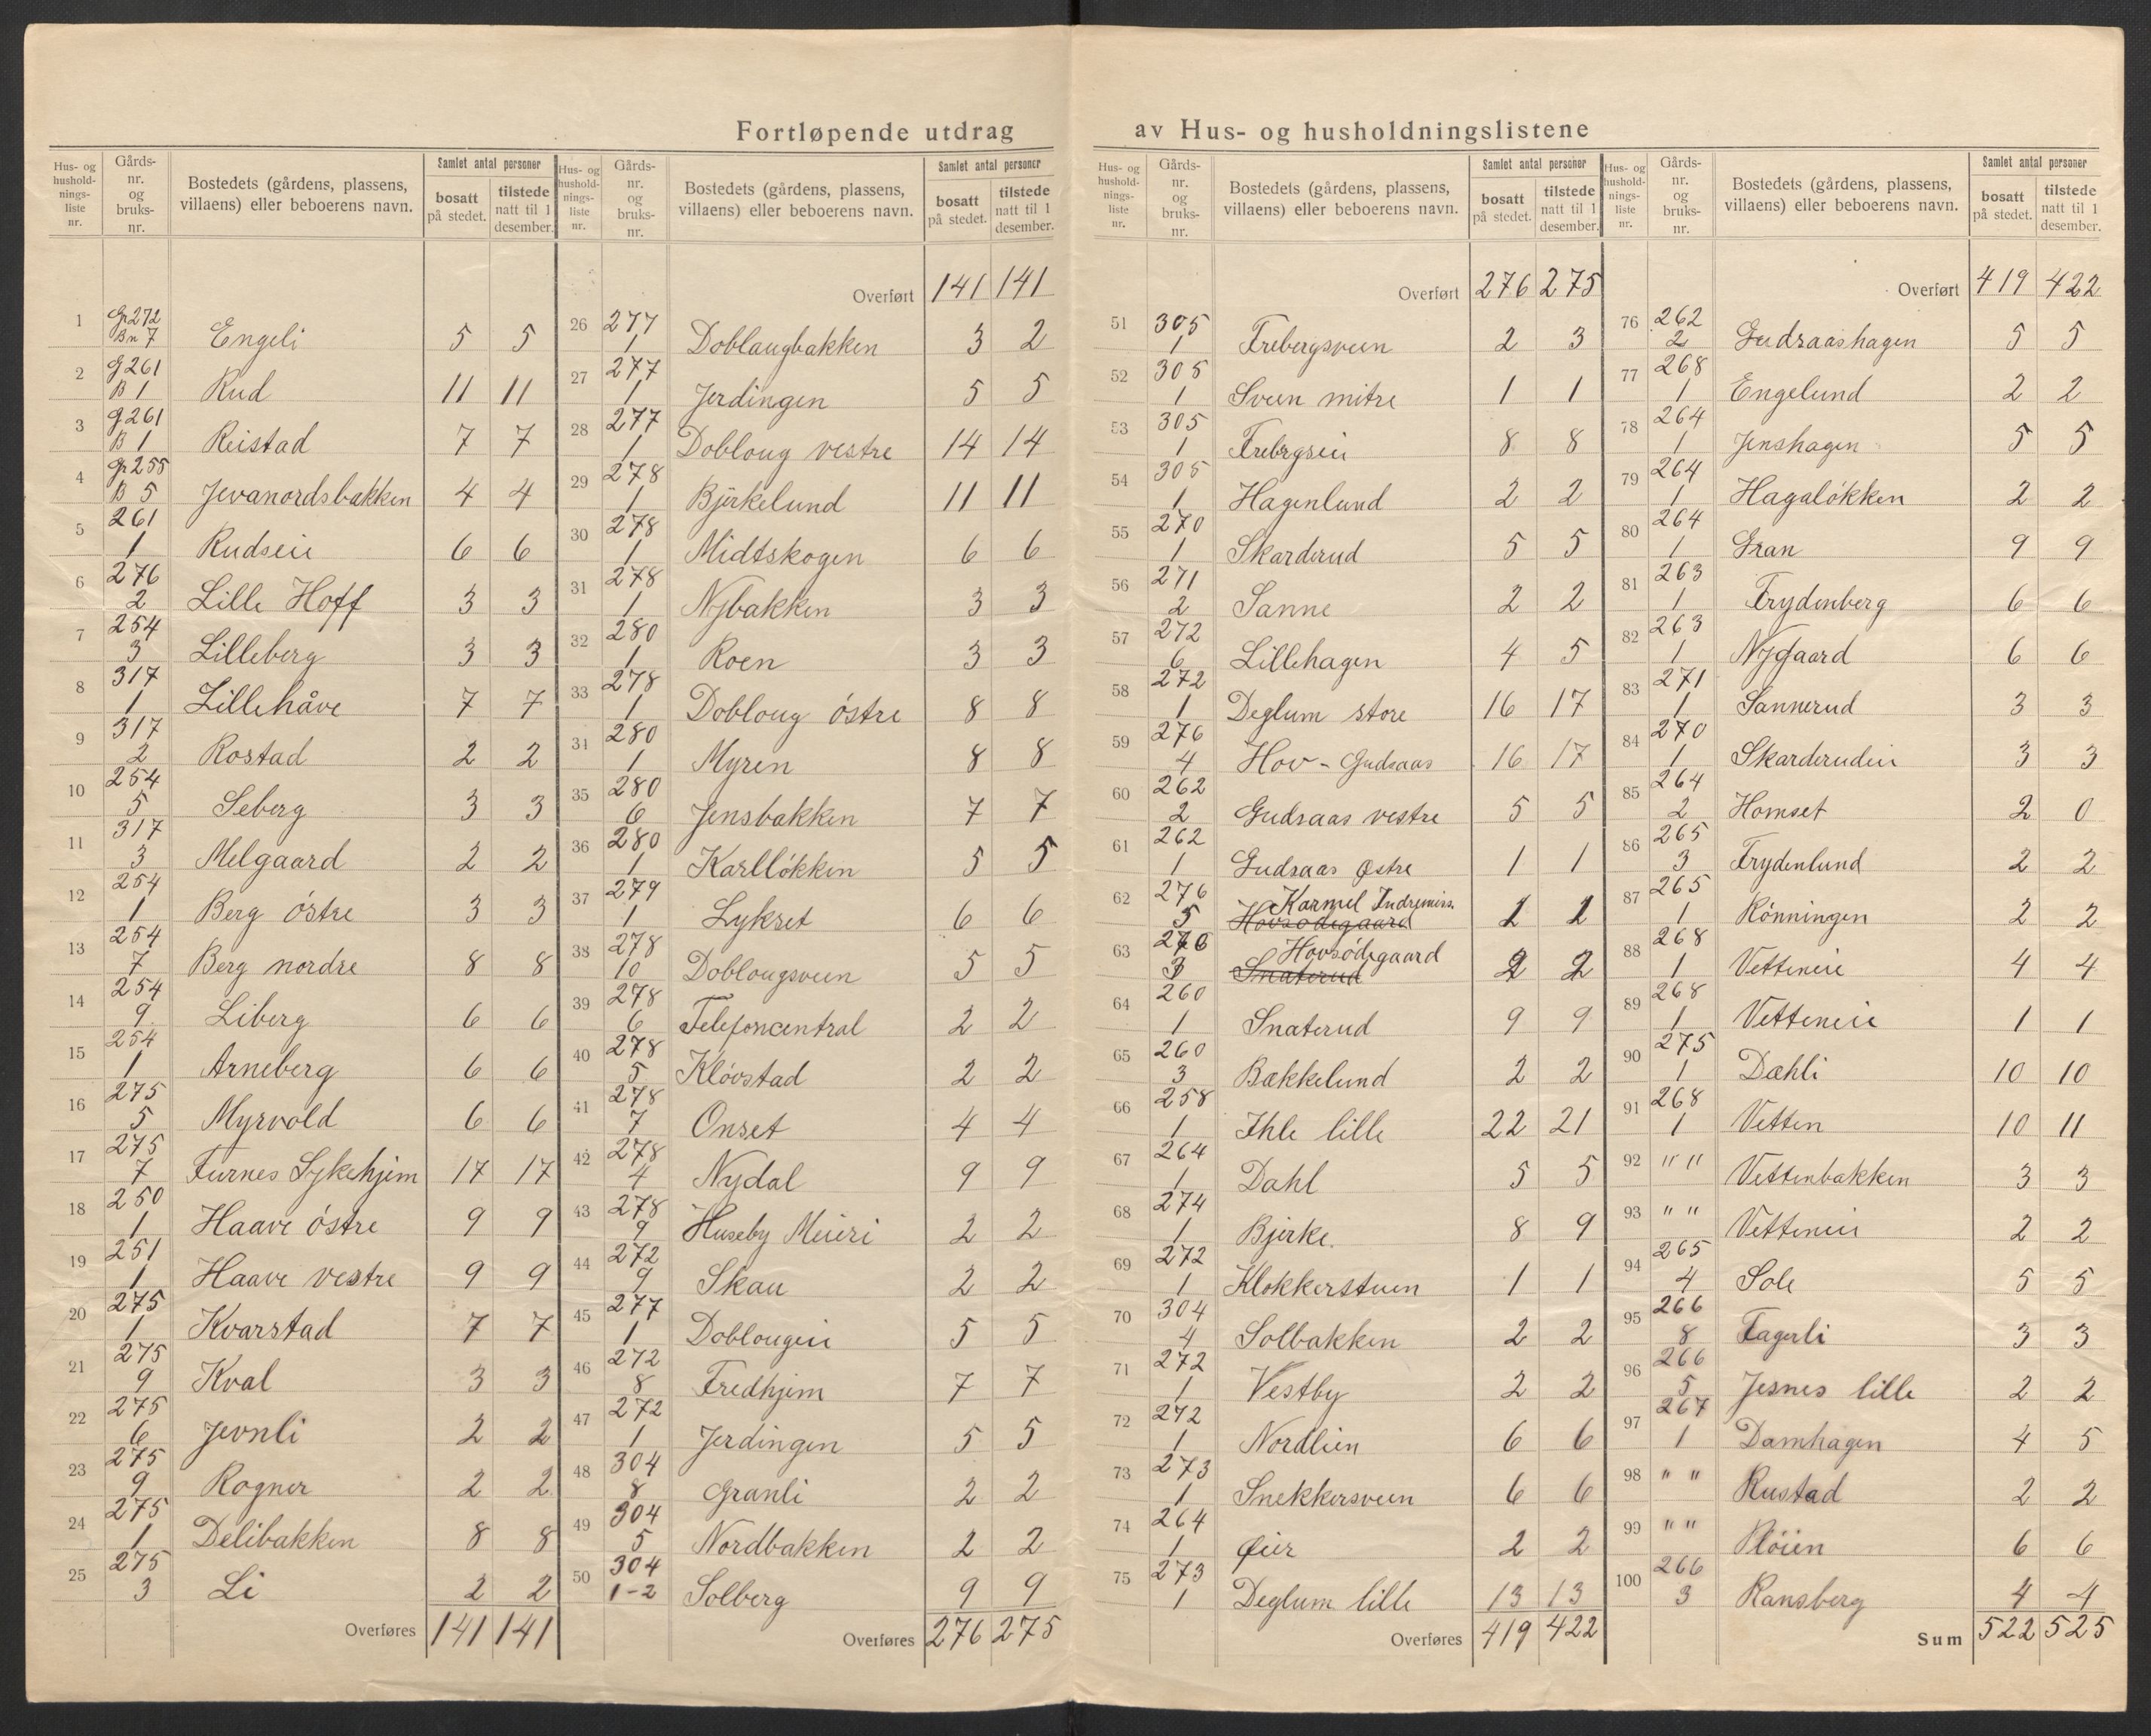 Fortløpende utdrag av Hus- og husholdningslistene
Hus- og hushold-nings-liste nr. | Gårds-nr. og bruks-nr. | Bostedets (gårdens, plassens, villaens) eller beboerens navn. | Samlet antal personer | bosatt på stedet. | tilstede natt til 1 desember.
1 Gr 272 Bn 7 Engeli 5 5
2 G 261 B 1 Rud 11 11
3 G 261 B 1 Reistad 7 7
4 Gr 255 B 5 Jevanordsbakken 4 4
5 261 1 Rudseie 6 6
6 276 2 Lille Hoff 3 3
7 254 3 Lilleberg 3 3
8 317 1 Lillehåve 7 7
9 317 2 Rostad 2 2
10 254 5 Seberg 3 3
11 317 3 Melgaard 2 2
12 254 1 Berg östre 3 3
13 254 7 Berg nordre 8 8
14 254 9 Liberg 6 6
15 254 1 Arneberg 6 6
16 275 5 Myrvold 6 6
17 275 7 Furnes Sykehjem 17 17
18 250 1 Haave östre 9 9
19 251 1 Haave vestre 9 9
20 275 1 Kvarstad 7 7
21 275 9 Kval 3 3
22 275 6 Jevnli 2 2
23 275 9 Rogner 2 2
24 275 1 Delibakken 8 8
25 275 3 Li 2 2
Overføres 141 141
Hus- og hushold-nings-liste nr. | Gårds-nr. og bruks-nr. | Bostedets (gårdens, plassens, villaens) eller beboerens navn. | Samlet antal personer | bosatt på stedet. | tilstede natt til 1 desember.
Overført 141 141
26 277 1 Doblaugbakken 3 2
27 277 1 Jerdingen 5 5
28 277 1 Dobloug vestre 14 14
29 278 1 Björkelund 11 11
30 278 1 Midtskogen 6 6
31 278 1 Nybakken 3 3
32 280 1 Roen 3 3
33 278 1 Dobloug östre 8 8
31 280 1 Myren 8 8
35 280 6 Jensbakken 7 7
36 280 1 Karllökken 5 5
37 279 1 Lykset 6 6
38 278 10 Doblougsveen 5 5
39 278 6 Telefoncentral 2 2
40 278 5 Klövstad 2 2
41 278 7 Onset 4 4
42 278 4 Nydal 9 9
43 278 9 Huseby Meieri 2 2
44 272 9 Skau 2 2
45 277 1 Doblougeie 5 5
46 272 8 Fredhjem 7 7
47 272 1 Jerdingen 5 5
48 304 8 Granli 2 2
49 304 5 Nordbakken 2 2
50 304 1-2 Solberg 9 9
Overføres 276 275
Hus- og hushold-nings-liste nr. | Gårds-nr. og bruks-nr. | Bostedets (gårdens, plassens, villaens) eller beboerens navn. | Samlet antal personer | bosatt på stedet. | tilstede natt til 1 desember.
Overført 276 275
51 305 1 Frebergsveen 2 3
52 305 1 Sveen mitre 1 1
53 305 1 Frebrgseie 8 8
54 305 1 Hagenlund 2 2
55 270 1 Skarderud 5 5
56 271 2 Sanne 2 2
57 272 6 Lillehagen 4 5
58 272 1 Deglum store 16 17
59 276 4 Hov - Gudsaas 16 17
60 262 2 Gudsaas vestre 5 5
61 262 1 Gudsaas Østre 1 1
62 276 5 Karmel Indremiss. Hovsödegaard 1 1
63 276 3 Hovsödegaard Snaterud 2 2
64 260 1 Snaterud 9 9
65 260 3 Bakkelund 2 2
66 258 1 Ihle lille 22 21
67 264 1 Dahl 5 5
68 274 1 Bjerke. 8 9
69 272 1 Klokkerstuen 1 1
70 304 4 Solbakken 2 2
71 272 1 Vestby 2 2
72 272 1 Nordlien 6 6
73 273 1 Snekkersveen 6 6
74 264 1 Øier 2 2
75 273 1 Deglum lille 13 13
Overføres 419 422
Hus- og hushold-nings-liste nr. | Gårds-nr. og bruks-nr. | Bostedets (gårdens, plassens, villaens) eller beboerens navn. | Samlet antal personer | bosatt på stedet. | tilstede natt til 1 desember.
Overført 419 422
76 262 2 Gudsaashagen 5 5
77 268 1 Engelund 2 2
78 264 1 Jenshagen 5 5
79 264 1 Hagalökken 2 2
80 264 1 Gran 9 9
81 263 1 Frydenberg 6 6
82 263 1 Nygaard 6 6
83 271 1 Sannerud 3 3
84 270 1 Skarderudeie 3 3
85 264 2 Homset 2 0
86 265 3 Frydenlund 2 2
87 265 1 Rönningen 2 2
88 268 1 Vetteneie 4 4
89 268 1 Vetteneie 1 1
90 275 1 Dahli 10 10
91 268 1 Vetten 10 11
92 " " Vettenbakken 3 3
93 " " Vetteneie 2 2
94 265 4 Sole 5 5
95 266 8 Fagerli 3 3
96 266 5 Jesnes lille 2 2
97 267 1 Damhagen 4 5
98 " " Rustad 2 2
99 " " Plöien 6 6
100 266 3 Ransberg 4 4
Sum 522 525